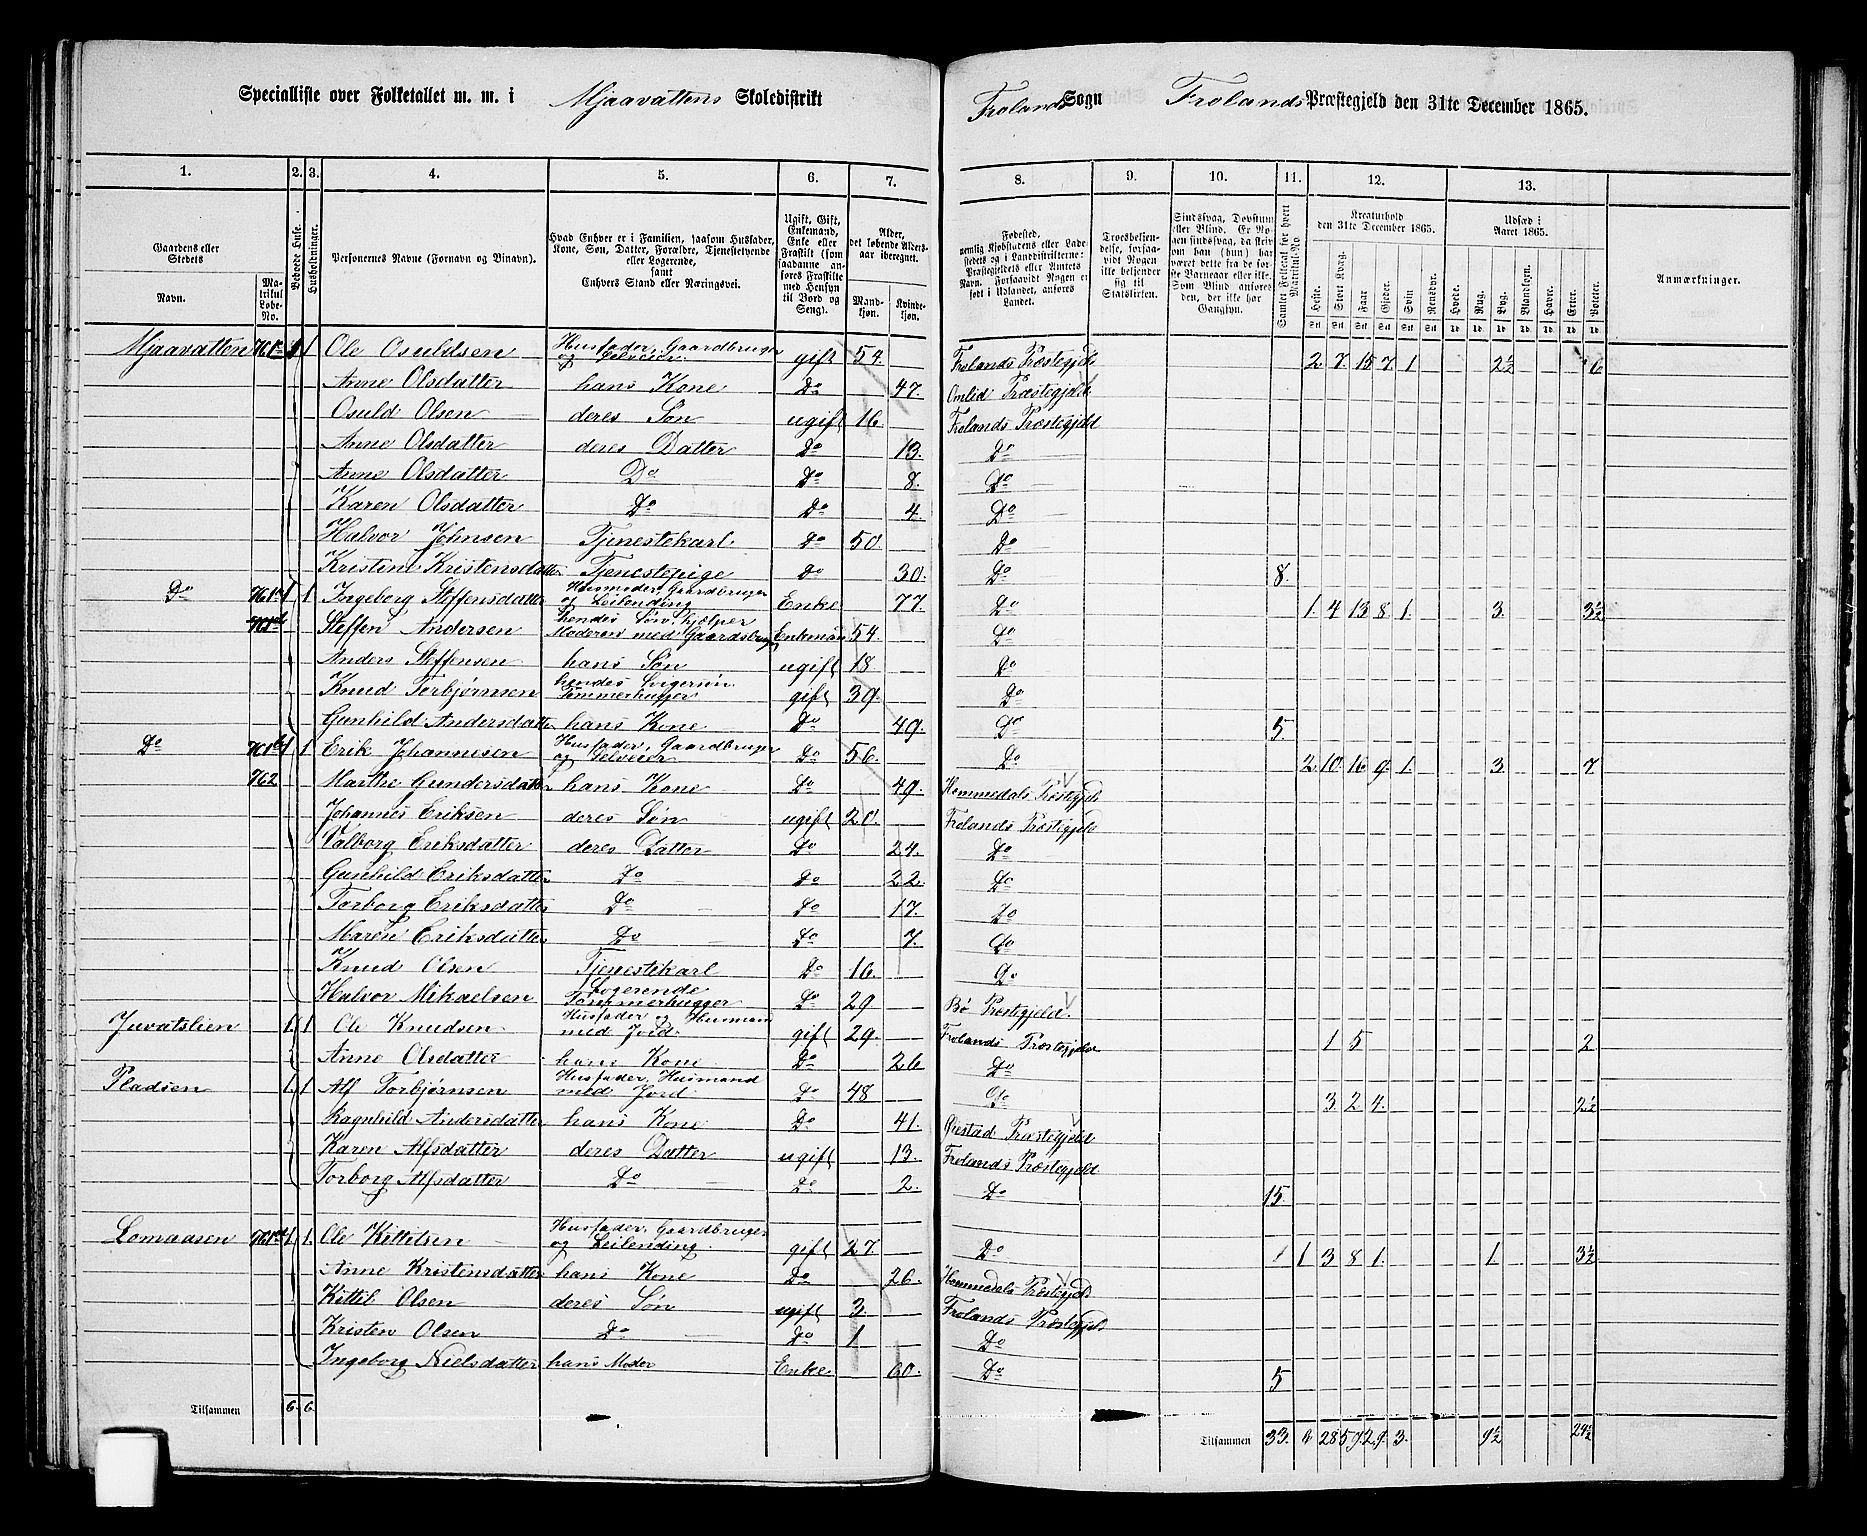 Specialliste over Folketallet m. m. i Mjaavattens Skoledistrikt Frolands Sogn Frolands Præstegjeld den 31te December 1865.
1. 2. 3. 4. 5. 6. 7. 8. 9. 10. 11. 12. 13.
Gaardens eller Stedets
Navn.
Matrikul Løbe-No.
Beboede Huse.
Husholdninger.
Personernes Navne (Fornavn og Binavn).
Hvad Enhver er i Familien, saasom Husfader, Kone, Søn, Datter, Forældre, Tjenestetyende eller Logerende,
samt
Enhvers Stand eller Næringsvei.
Ugift, Gift, Enkemand, Enke eller Fraskilt (som saadanne anføres Fraskilte med Hensyn til Bord og Seng).
Alder, det løbende Aldersaar iberegnet.
Mandkjøn.
Kvindekjøn.
Fødested,
nemlig Kjøbstadens eller Ladestedets og i Landdistrikterne: Præstegjeldets eller Amtets Navn. Forsaavidt Nogen er født i Udlandet, anføres Landet.
Troesbekjendelse, forsaavidt Nogen ikke bekjender sig til Statskirken.
Sindssvag, Døvstum eller Blind. Er Nogen sindssvag, da skriv om han (hun) har været dette fra de første Barneaar eller ikke. Som Blind anføres den, der ikke har Gangsyn.
Samlet Folketal for hvert Matrikul-No.
Kreaturhold den 31te December 1865.
Heste. Stort Kvæg. Faar Gjeder. Svin Rensdyr.
Udsæd i Aaret 1865.
Hvede. Rug. Byg. Blandkorn. Havre. Erter. Poteter.
Anmærkninger.
Mjaavatten 1 1 Ole Osuldsen Husfader, Gaardbruger og Selveier gift 54. Frolands Præstegjeld 2 7 15 7 1 2½ 6
Anne Olsdatter hans Kone Do 47. Omlid Præstegjeld
Osuld Olsen deres Søn ugift 16. Frolands Præstegjeld
Anne Olsdatter deres Datter Do 13. Do
Anne Olsdatter Do Do 8. Do
Karen Olsdatter Do Do 4. Do
Halvor Johnsen Tjenestekarl Do 50. Do
Kristine Kristensdatter Tjenestepige Do 30. Do 8.
Do 1 1 Ingeborg Steffensdatter Husmoder, Gaardbruger og Leilending Enke 77. Do 1. 4 13 8. 1. 3. 3½
Steffen Andersen hendes Søn, hjelper Moderen med Gaardsbrug Enkman 54. Do
Anders Steffensen hans Søn ugift 18. Do
Knud Torbjørnsen hendes Svigersøn Tømmerhugger gift 39. Do
Gunhild Andersdatter hans Kone Do 49. Do 5.
Do 1 1 Erik Johannesen Husfader, Gaardbruger og Selveier Do 56. Do 2. 10. 16 9. 1. 3. 7
No2 Marthe Gundersdatter hans Kone Do 49. Hommedals Præstegjeld
Johannes Eriksen deres Søn ugift 20. Frolands Præstegjeld
Valborg Eriksdatter deres Datter Do 24. Do
Gunhild Eriksdatter Do Do 22. Do
Torborg Eriksdatter Do Do 17. Do
Maren Eriksdatter Do Do 7. Do
Knud Olsen Tjenestekarl Do 16. Do
Halvor Mikaelsen Logerende Tømmerhugger Do 29 Bø Præstegjeld.
Juvatslien 1. 1 Ole Knudsen Husfader og Husmand med Jord. gift 29. Frolands Præstegjeld 1 5 2
Anne Olsdatter hans Kone Do 26 Do
Pladsen 1. 1 Alf Torbjørnsen Husfader, Husmand med Jord Do 48 Do 3. 2. 4. 2½
Ragnhild Andersdatter hans Kone Do 41. Øiestad Præstegjeld
Karen Alfsdatter deres Datter ugift 13. Frolands Præstegjeld
Torborg Alfsdatter Do Do 2. Do 15.
Lomaasen 1. 1. Ole Kittilsen Husfader, Gaardbruger og Leilending. gift 27. Do 1 1 3 8 1. 1. 3½
Anne Kristensdatter hans Kone Do 26. Hommedals Præstegjeld
Kittil Olsen deres Søn ugift 3. Frolands Præstegjeld
Kristen Olsen Do Do 1 Do
Ingeborg Nielsdatter hans Moder Enke 60. Do 5
Tilsammen 6. 6. Tilsammen 33. 6 28 59. 29. 3. 9½ 24½